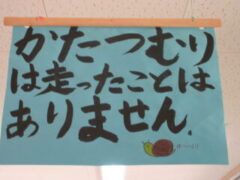 かたつむり
は走ったことは
ありません。